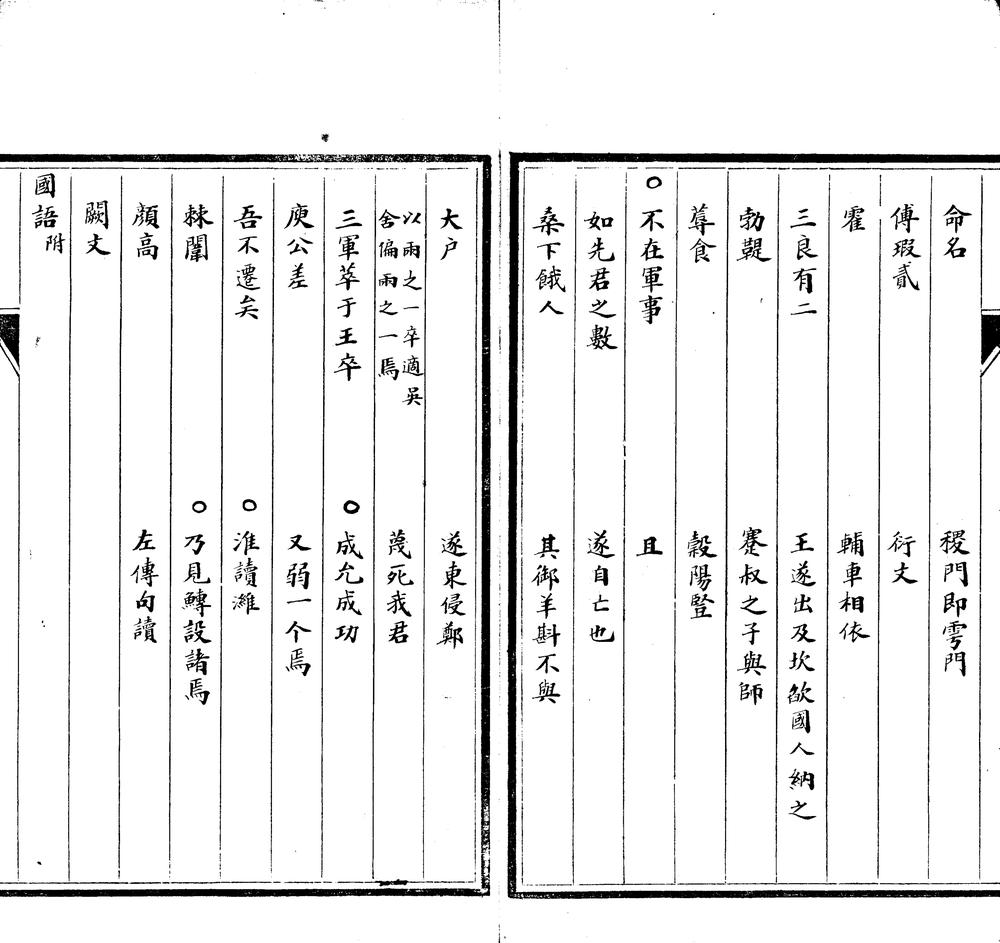 命名　稷門即雩門
傅瑕貳　衍文
霍　輔車相依
三良有二　王遂出及坎欿國人納之
勃鞮　蹇叔之子與師
蓐食　穀陽豎
○不在軍事　且
如先君之數　遂自亡也
桑下餓人　其御羊斟不與
大户　遂東侵鄭
以兩之一卒適吳舍偏兩之一焉　蔑死我君
三軍萃于王卒　○成允成功
庾公差　又弱一个焉
吾不遷矣　○淮讀濰
棘闈　○乃見鱄設諸焉
顏高　左傳句讀
闕文
國語附